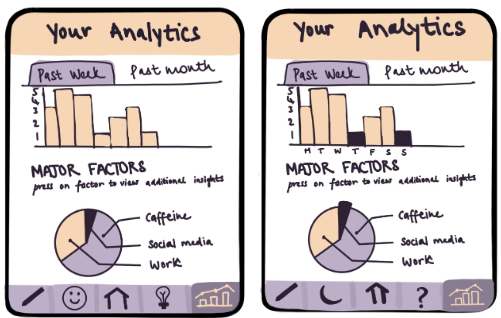 Your Analytics
Past Week Past month
5
4
3
2
1
MAJOR FACTORS
press on factor to view additional insights
Caffeine
Social media
Work
Your Analytics
Past Week Past month
5
4
3
2
1
M T W T F S S
MAJOR FACTORS
press on factor to view additional insights
Caffeine
Social media
Work
?